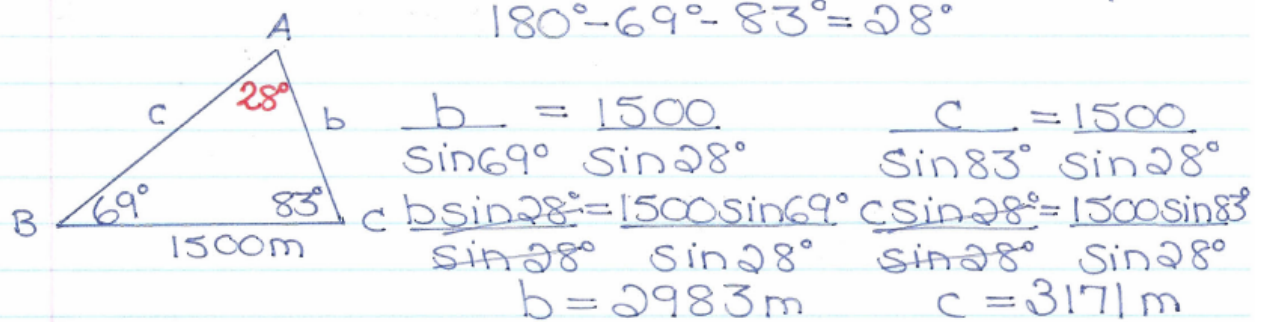 180°-69°-83°=28°
A
28°
c
b
B
69°
83°
C
1500m
b/sin69° = 1500/sin28°
bsin28°/sin28° = 1500sin69°/sin28°
b=2983m
c/sin83° = 1500/sin28°
csin28°/sin28° = 1500sin83°/sin28°
c=3171m